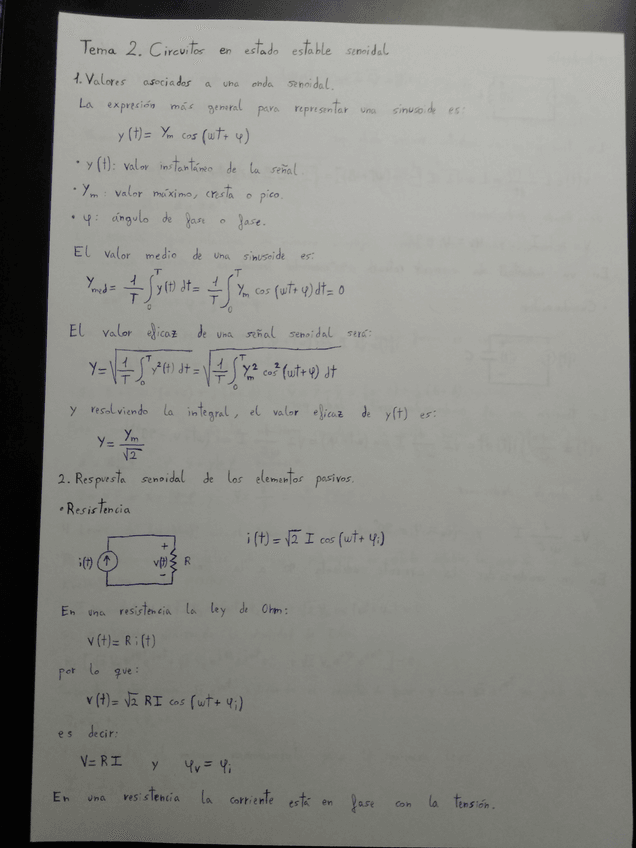 Tema 2. Circuitos en estado estable senoidal
1. Valores asociados a una onda senoidal.
La expresión más general para representar una sinusoide es:
y(t)= Ym cos (ωt+ φ)
• y(t): valor instantáneo de la señal.
• Ym: valor máximo, cresta o pico.
• φ: ángulo de fase o fase.
El valor medio de una sinusoide es:
Ymed= 1/T ∫₀ᵀ y(t) dt= 1/T ∫₀ᵀ Ym cos (ωt+φ) dt= 0
El valor eficaz de una señal senoidal será:
Y= √(1/T ∫₀ᵀ y²(t) dt) = √(1/T ∫₀ᵀ Ym² cos² (ωt+φ) dt)
y resolviendo la integral, el valor eficaz de y(t) es:
Y= Ym/√2
2. Respuesta senoidal de los elementos pasivos.
• Resistencia
i(t) = √2 I cos (ωt+ φi)
i(t) + v(t) - R
En una resistencia la ley de Ohm:
v(t)= R i(t)
por lo que:
v(t)= √2 RI cos (ωt+ φi)
es decir:
V= RI y φv = φi
En una resistencia la corriente está en fase con la tensión.